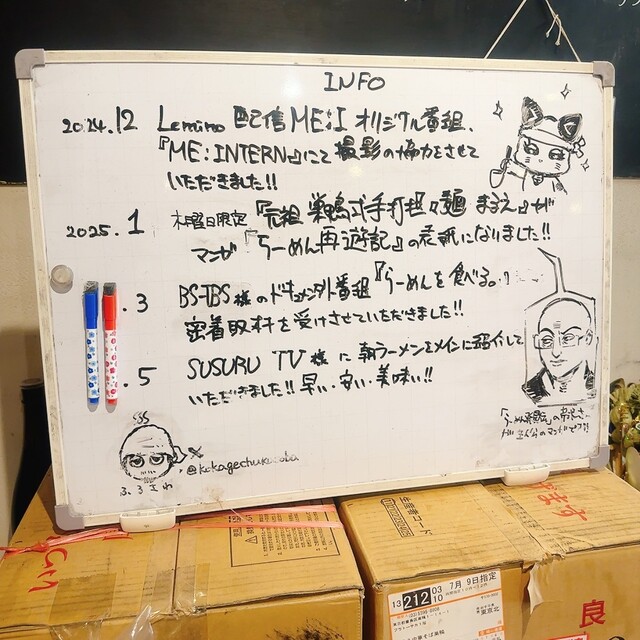 INFO
2024.12 Lemino 配信 ME:I オリジナル番組、
『ME:INTERN』にて撮影の協力をさせて
いただきました!!
2025.1 木曜日限定『元祖 巣鴨式手打担々麺 まるえ』が
マンガ『らーめん再遊記』の表紙になりました!!
.3 BS-TBS様のドキュメンタリー番組『らーめんを食べる。』
密着取材を受けさせていただきました!!
.5 SUSURU TV様に朝ラーメンをメインに紹介して
いただきました!! 早い・安い・美味い!!
『らーめん再遊記』の
ふるさわ
@kokagechukasoba
生産者コード
13 212 03 10
7月9日指定
東京北
ます
良